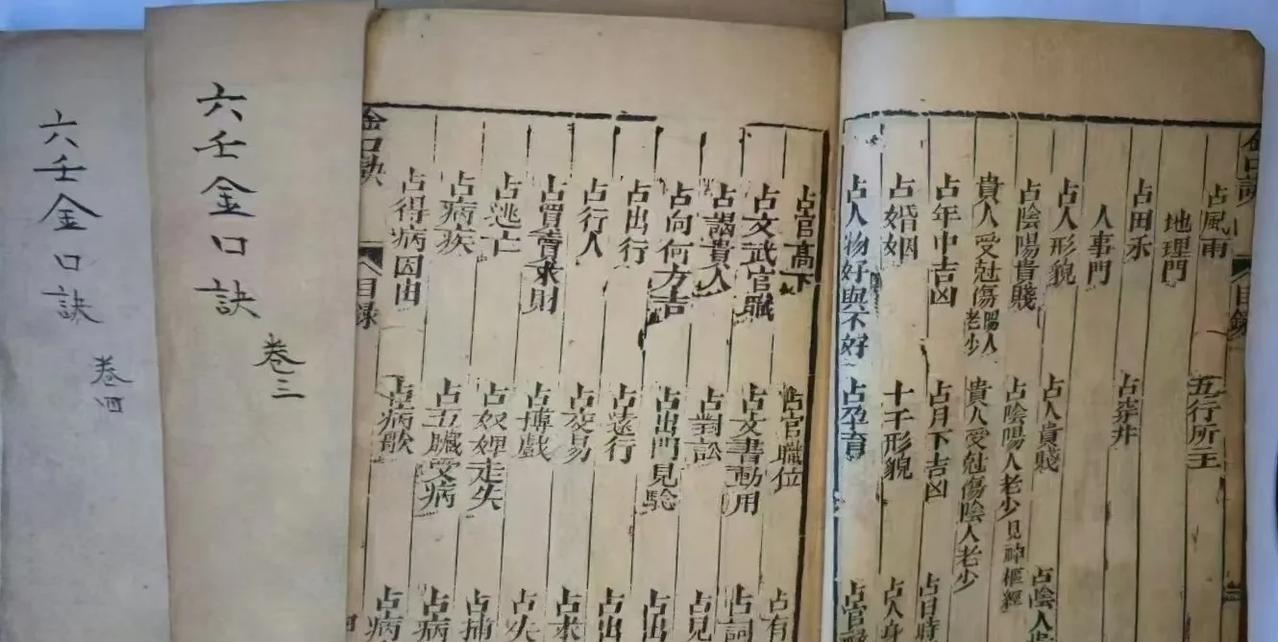 六壬金口訣
卷四
六壬金口訣
卷三
金口訣
目録
占風雨 五行所主
地理門
占田禾 占葬井
人事門
占人形貌 占人貴賤 占陰人
占陰陽貴賤 占陰陽人老少見神樞經
貴人受尅傷陽人老少 貴人受尅傷陰人老少
占年中吉凶 占月下吉凶 占日時
占婚姻 十干形貌 占人身
占人物好與不好 占孕育 占官
占官高下 占官職位 占有
占文武官職 占文書動用 占詞
占謁貴人 占對訟 占見
占向何方吉 占出門見駼 占出
占出行 占遠行 占
占行人 占交易 占
占買賣求財 占博戲 占求
占逃亡 占奴婢走失 占失
占病疾 占五臟受病 占病
占得病因由 占病歌 占病
金口訣
目録